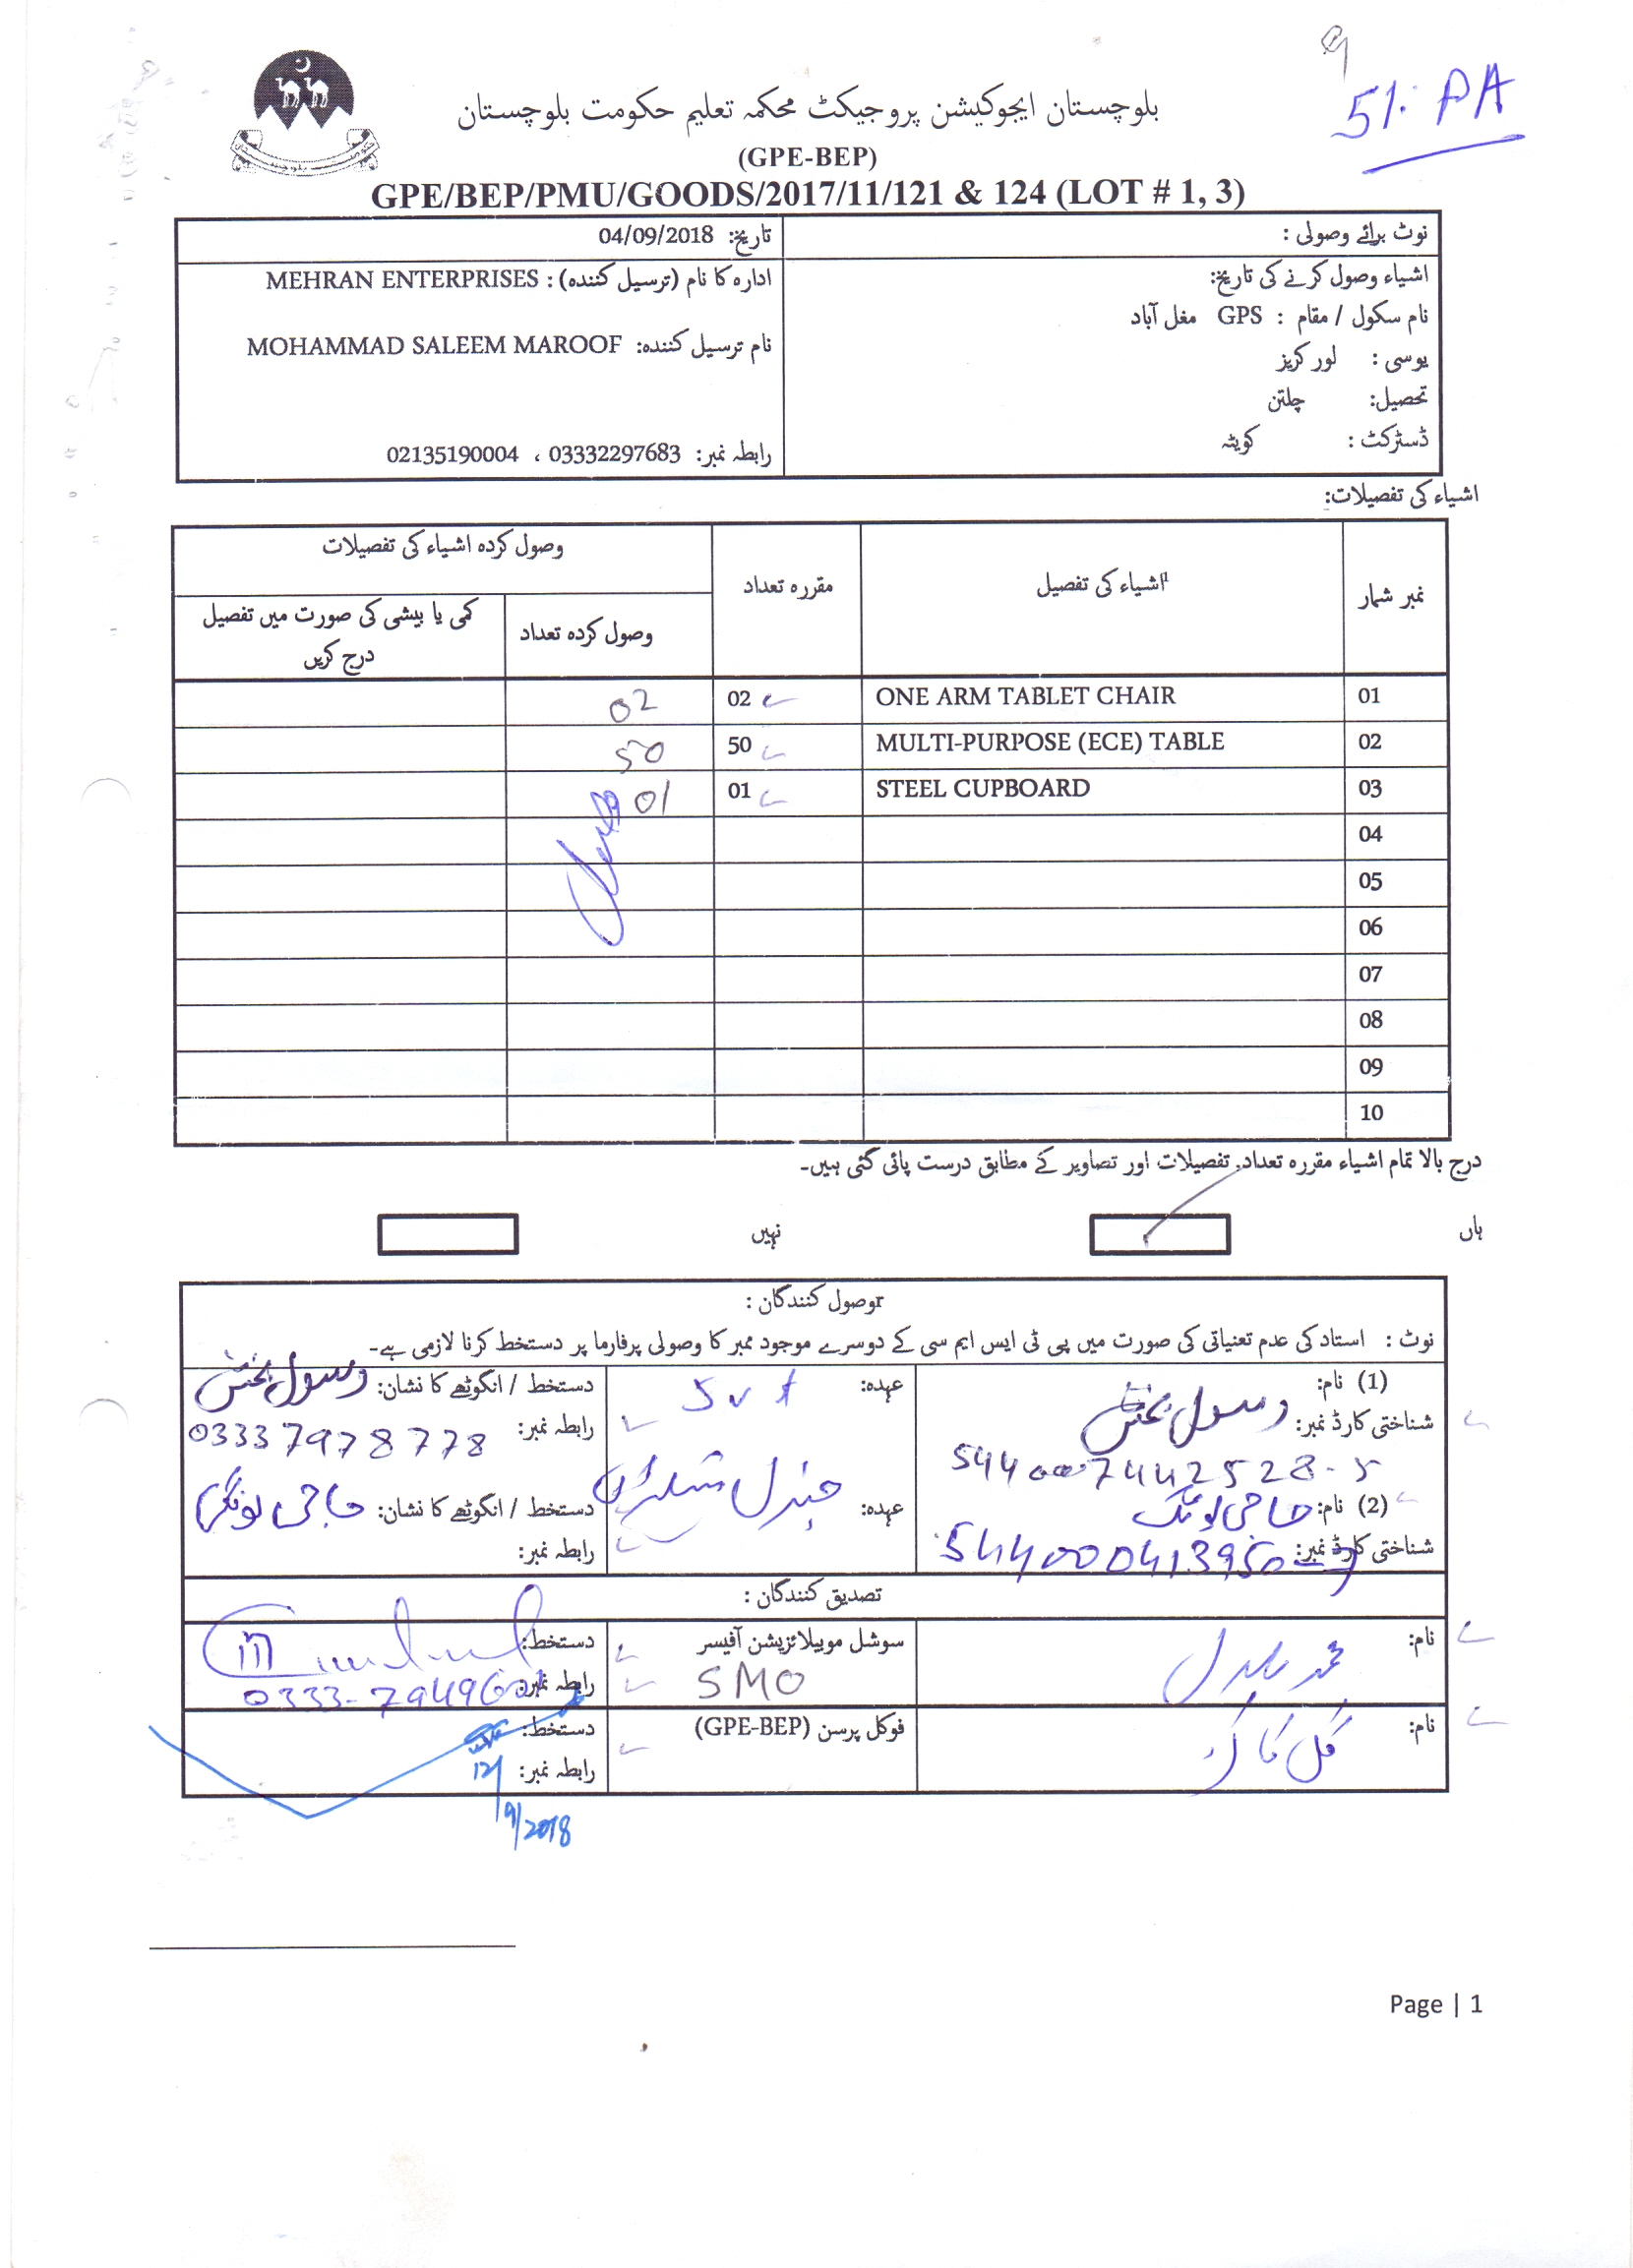 51: PA
بلوچستان ایجوکیشن پروجیکٹ محکمہ تعلیم حکومت بلوچستان
(GPE-BEP)
GPE/BEP/PMU/GOODS/2017/11/121 & 124 (LOT # 1, 3)
نوٹ برائے وصولی :
اشیاء وصول کرنے کی تاریخ:
نام سکول / مقام : GPS مغل آباد
یوسی : لور کریز
تحصیل: چلتن
ڈسٹرکٹ : کویٹہ
تاریخ: 04/09/2018
ادارہ کا نام (ترسیل کنندہ) : MEHRAN ENTERPRISES
نام ترسیل کنندہ: MOHAMMAD SALEEM MAROOF
رابطہ نمبر: 03332297683 ، 02135190004
اشیاء کی تفصیلات:
نمبر شمار اشیاء کی تفصیل مقررہ تعداد وصول کردہ اشیاء کی تفصیلات
وصول کردہ تعداد کمی یا بیشی کی صورت میں تفصیل
درج کریں
01 ONE ARM TABLET CHAIR 02 02
02 MULTI-PURPOSE (ECE) TABLE 50 50
03 STEEL CUPBOARD 01 01
04
05
06
07
08
09
10
درج بالا تمام اشیاء مقررہ تعداد, تفصیلات اور تصاویر کے مطابق درست پائی گئی ہیں۔
ہاں نہیں
وصول کنندگان :
نوٹ : استاد کی عدم تعنیاتی کی صورت میں پی ٹی ایس ایم سی کے دوسرے موجود ممبر کا وصولی پرفارما پر دستخط کرنا لازمی ہے۔
(1) نام: رسول بخش عہدہ: دستخط / انگوٹھے کا نشان: رسول بخش
شناختی کارڈ نمبر: 544007442528-5 رابطہ نمبر: 03337978778
(2) نام: حاجی لونگ عہدہ: جنرل دستخط / انگوٹھے کا نشان: حاجی لونگ
شناختی کارڈ نمبر: رابطہ نمبر:
تصدیق کنندگان :
نام: محمد سوشل موبیلائزیشن آفیسر دستخط:
SMO رابطہ نمبر:
نام: گل فوکل پرسن (GPE-BEP) دستخط:
رابطہ نمبر:
12/9/2018
Page | 1